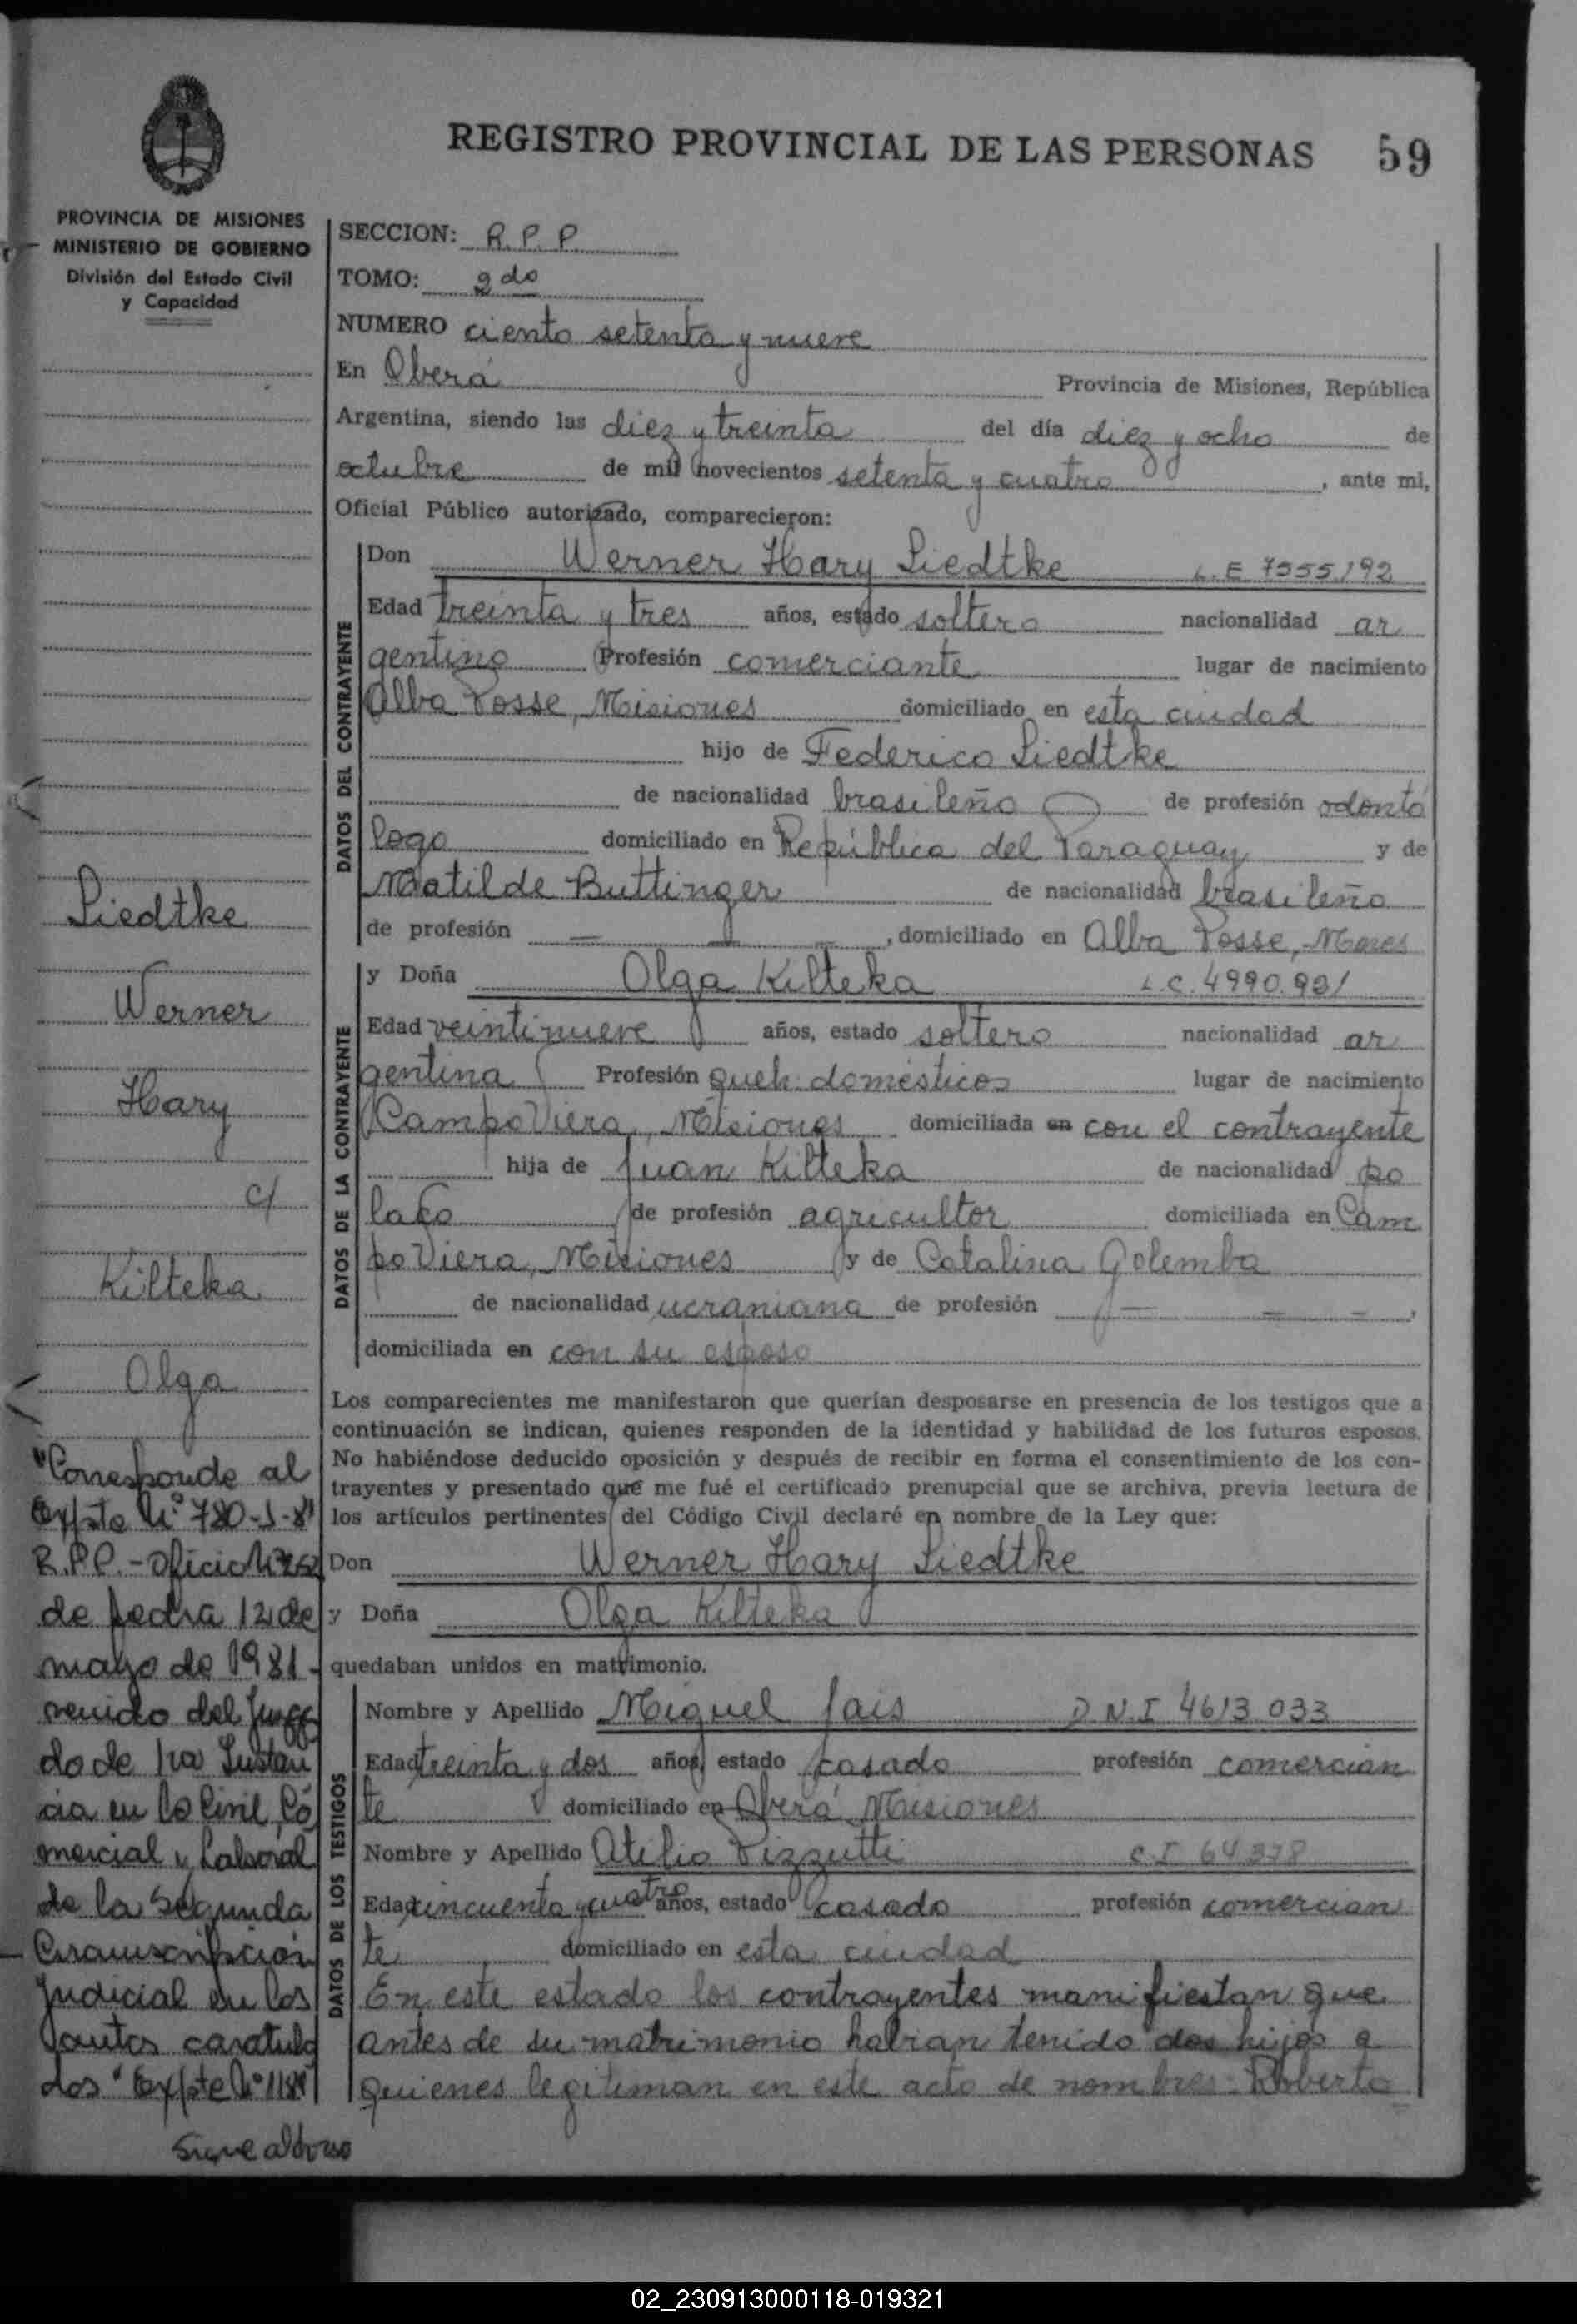 REGISTRO PROVINCIAL DE LAS PERSONAS 59
PROVINCIA DE MISIONES
MINISTERIO DE GOBIERNO
División del Estado Civil
y Capacidad
SECCION: R.P.P.
TOMO: 2do
NUMERO ciento setenta y nueve
En Oberá Provincia de Misiones, República
Argentina, siendo las diez y treinta del día diez y ocho de
octubre de mil novecientos setenta y cuatro, ante mi,
Oficial Público autorizado, comparecieron:
DATOS DEL CONTRAYENTE
Don Werner Hary Liedtke L.E 7555192
Edad treinta y tres años, estado soltero nacionalidad ar
gentino Profesión comerciante lugar de nacimiento
Alba Posse, Misiones domiciliado en esta ciudad
hijo de Federico Liedtke
de nacionalidad brasileño de profesión odontó
logo domiciliado en República del Paraguay y de
Matilde Buttinger de nacionalidad brasileño
de profesión — — —, domiciliado en Alba Posse, Mnes
DATOS DE LA CONTRAYENTE
y Doña Olga Kilteka L.C. 4990.931
Edad veintinueve años, estado soltero nacionalidad ar
gentina Profesión queh. domésticos lugar de nacimiento
Campo Viera, Misiones domiciliada en con el contrayente
hija de Juan Kilteka de nacionalidad po
laco de profesión agricultor domiciliada en Cam
po Viera, Misiones y de Catalina Golemba
de nacionalidad ucraniana de profesión — — —,
domiciliada en con su esposo
Los comparecientes me manifestaron que querían desposarse en presencia de los testigos que a
continuación se indican, quienes responden de la identidad y habilidad de los futuros esposos.
No habiéndose deducido oposición y después de recibir en forma el consentimiento de los con-
trayentes y presentado que me fué el certificado prenupcial que se archiva, previa lectura de
los artículos pertinentes del Código Civil declaré en nombre de la Ley que:
Don Werner Hary Liedtke
y Doña Olga Kilteka
quedaban unidos en matrimonio.
DATOS DE LOS TESTIGOS
Nombre y Apellido Miguel Jais D.N.I 4613.033
Edad treinta y dos años, estado casado profesión comercian
te domiciliado en Oberá Misiones
Nombre y Apellido Atilio Pizzutti C.I
Edad cincuenta y cuatro años, estado casado profesión comercian
te domiciliado en esta ciudad
En este estado los contrayentes manifiestan que
antes de su matrimonio habian tenido dos hijos a
quienes legitiman en este acto de nombres: Roberto
Liedtke
Werner
Hary
c/
Kilteka
Olga
"Corresponde al
Expte Nº 780-J-81
R.P.P.-Oficio
de fecha 12 de
mayo de 1981-
venido del Juzga
do de 1ra Instan
cia en lo Civil, Co
mercial y Laboral
de la Segunda
Circunscripcion
Judicial en los
autos caratula
dos "Expte Nº
Sigue al dorso
02_230913000118-019321